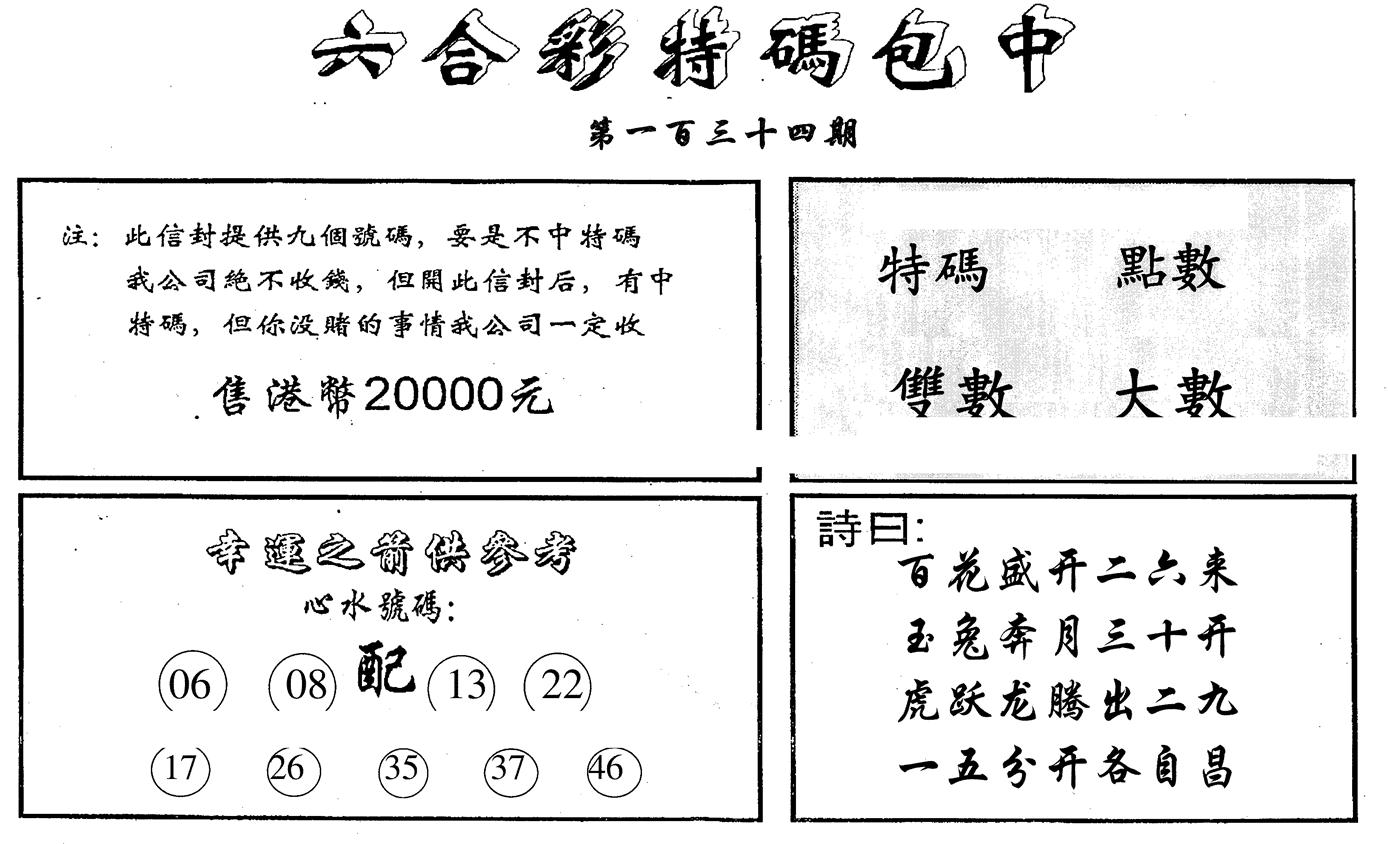 六合彩特碼包中
第一百三十四期
注：此信封提供九個號碼，要是不中特碼
我公司絶不收錢，但開此信封后，有中
特碼，但你没賭的事情我公司一定收
售港幣20000元
特碼 點數
雙數 大數
幸運之箭供參考
心水號碼：
06 08 配 13 22
17 26 35 37 46
詩曰：
百花盛开二六来
玉兔奔月三十开
虎跃龙腾出二九
一五分开各自昌